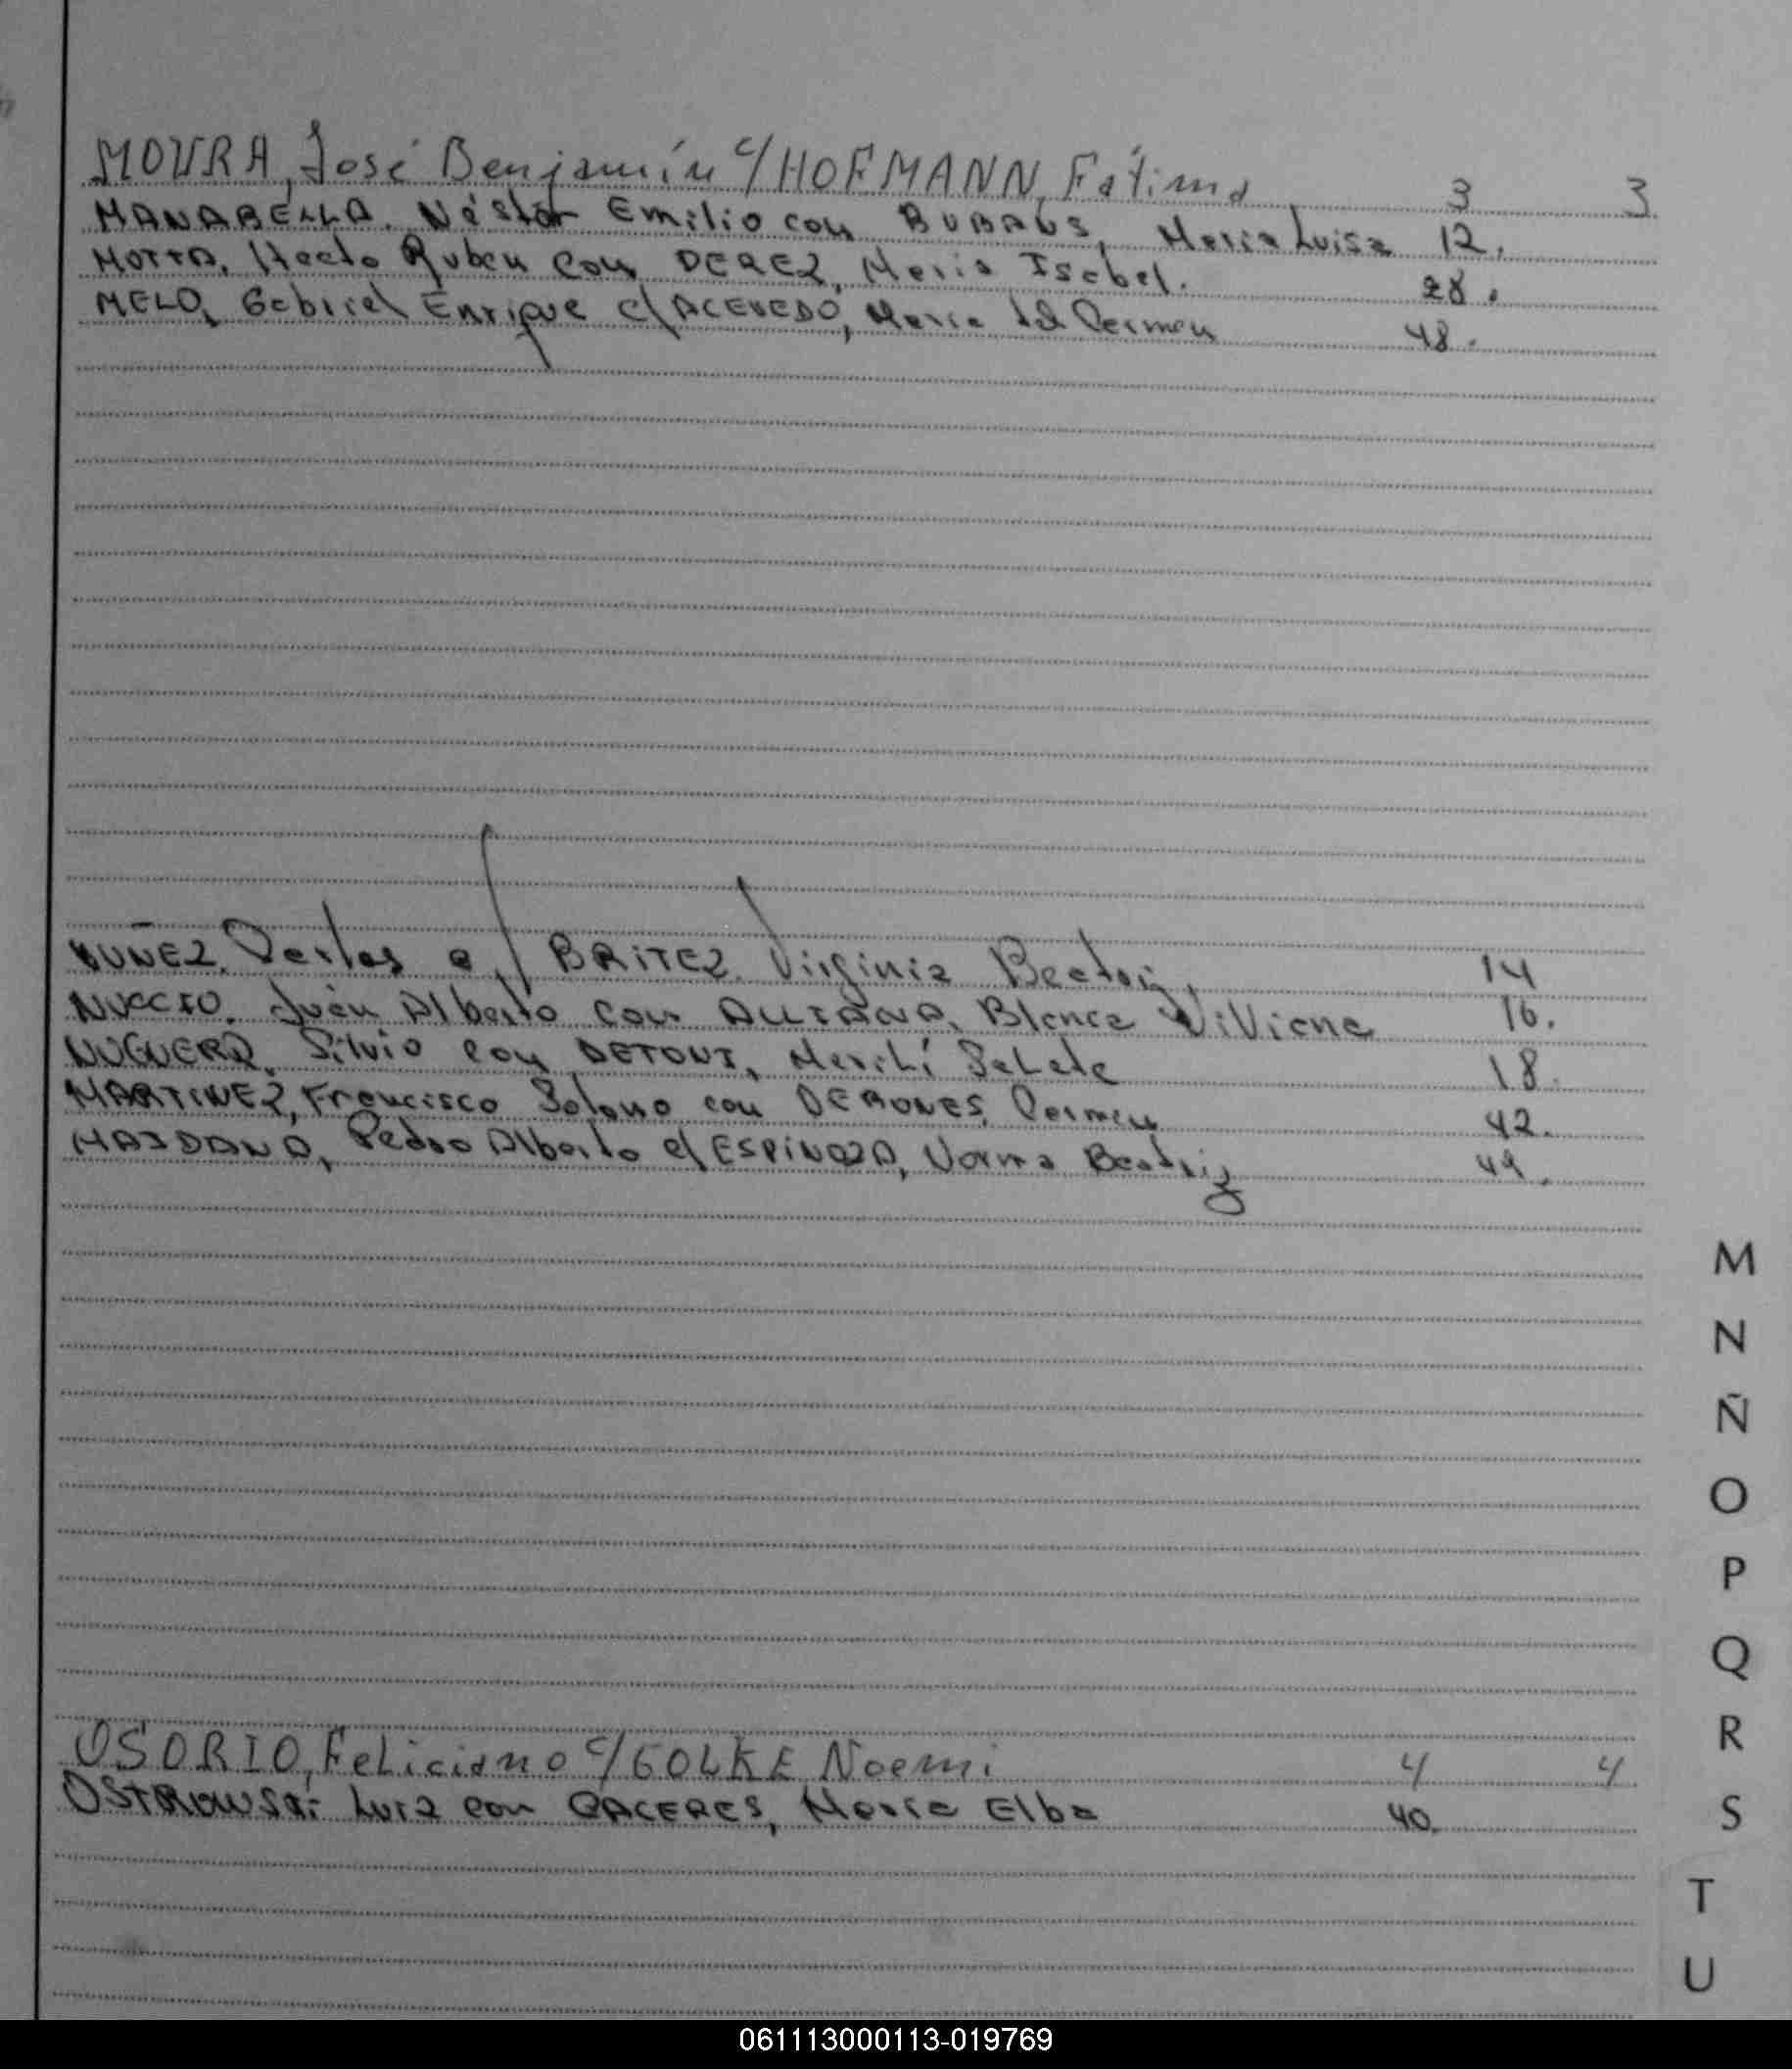 MOURA, José Benjamín c/ HOFMANN, Fátima 3 3
MANABELLA, Néstor Emilio con BUBANS, Maria Luisa 12.
MOTTA, Hecto Ruben con PEREZ, Maria Isabel. 28.
MELO, Gabriel Enrique c/ ACEVEDO, Maria del Carmen 48.
NUÑEZ, Carlos c/ BRITEZ, Virginia Beatriz, 14
NUCCIO, Juan Alberto con Blanca Viviana 16.
NOGUERA, Silvio con Marilí Salete 18.
MARTINEZ, Francisco Solano con Carmen 42.
MAIDANA, Pedro Alberto c/ ESPINOZA, Norma Beatriz 49.
M
N
Ñ
O
P
Q
R
OSORIO, Feliciano c/ GOLKE Noemi 4 4
OSTROWSKI Luiz con CACERES, Maria Elba 40.
S
T
U
061113000113-019769